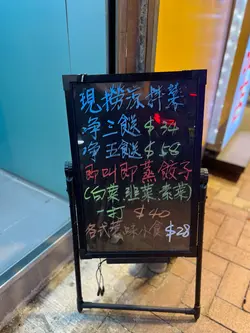 現撈涼拌菜
净三餸 $34
净五餸 $58
即叫即蒸餃子
(白菜,韮菜,素菜)
一打 $40
各式滷味小食 $28